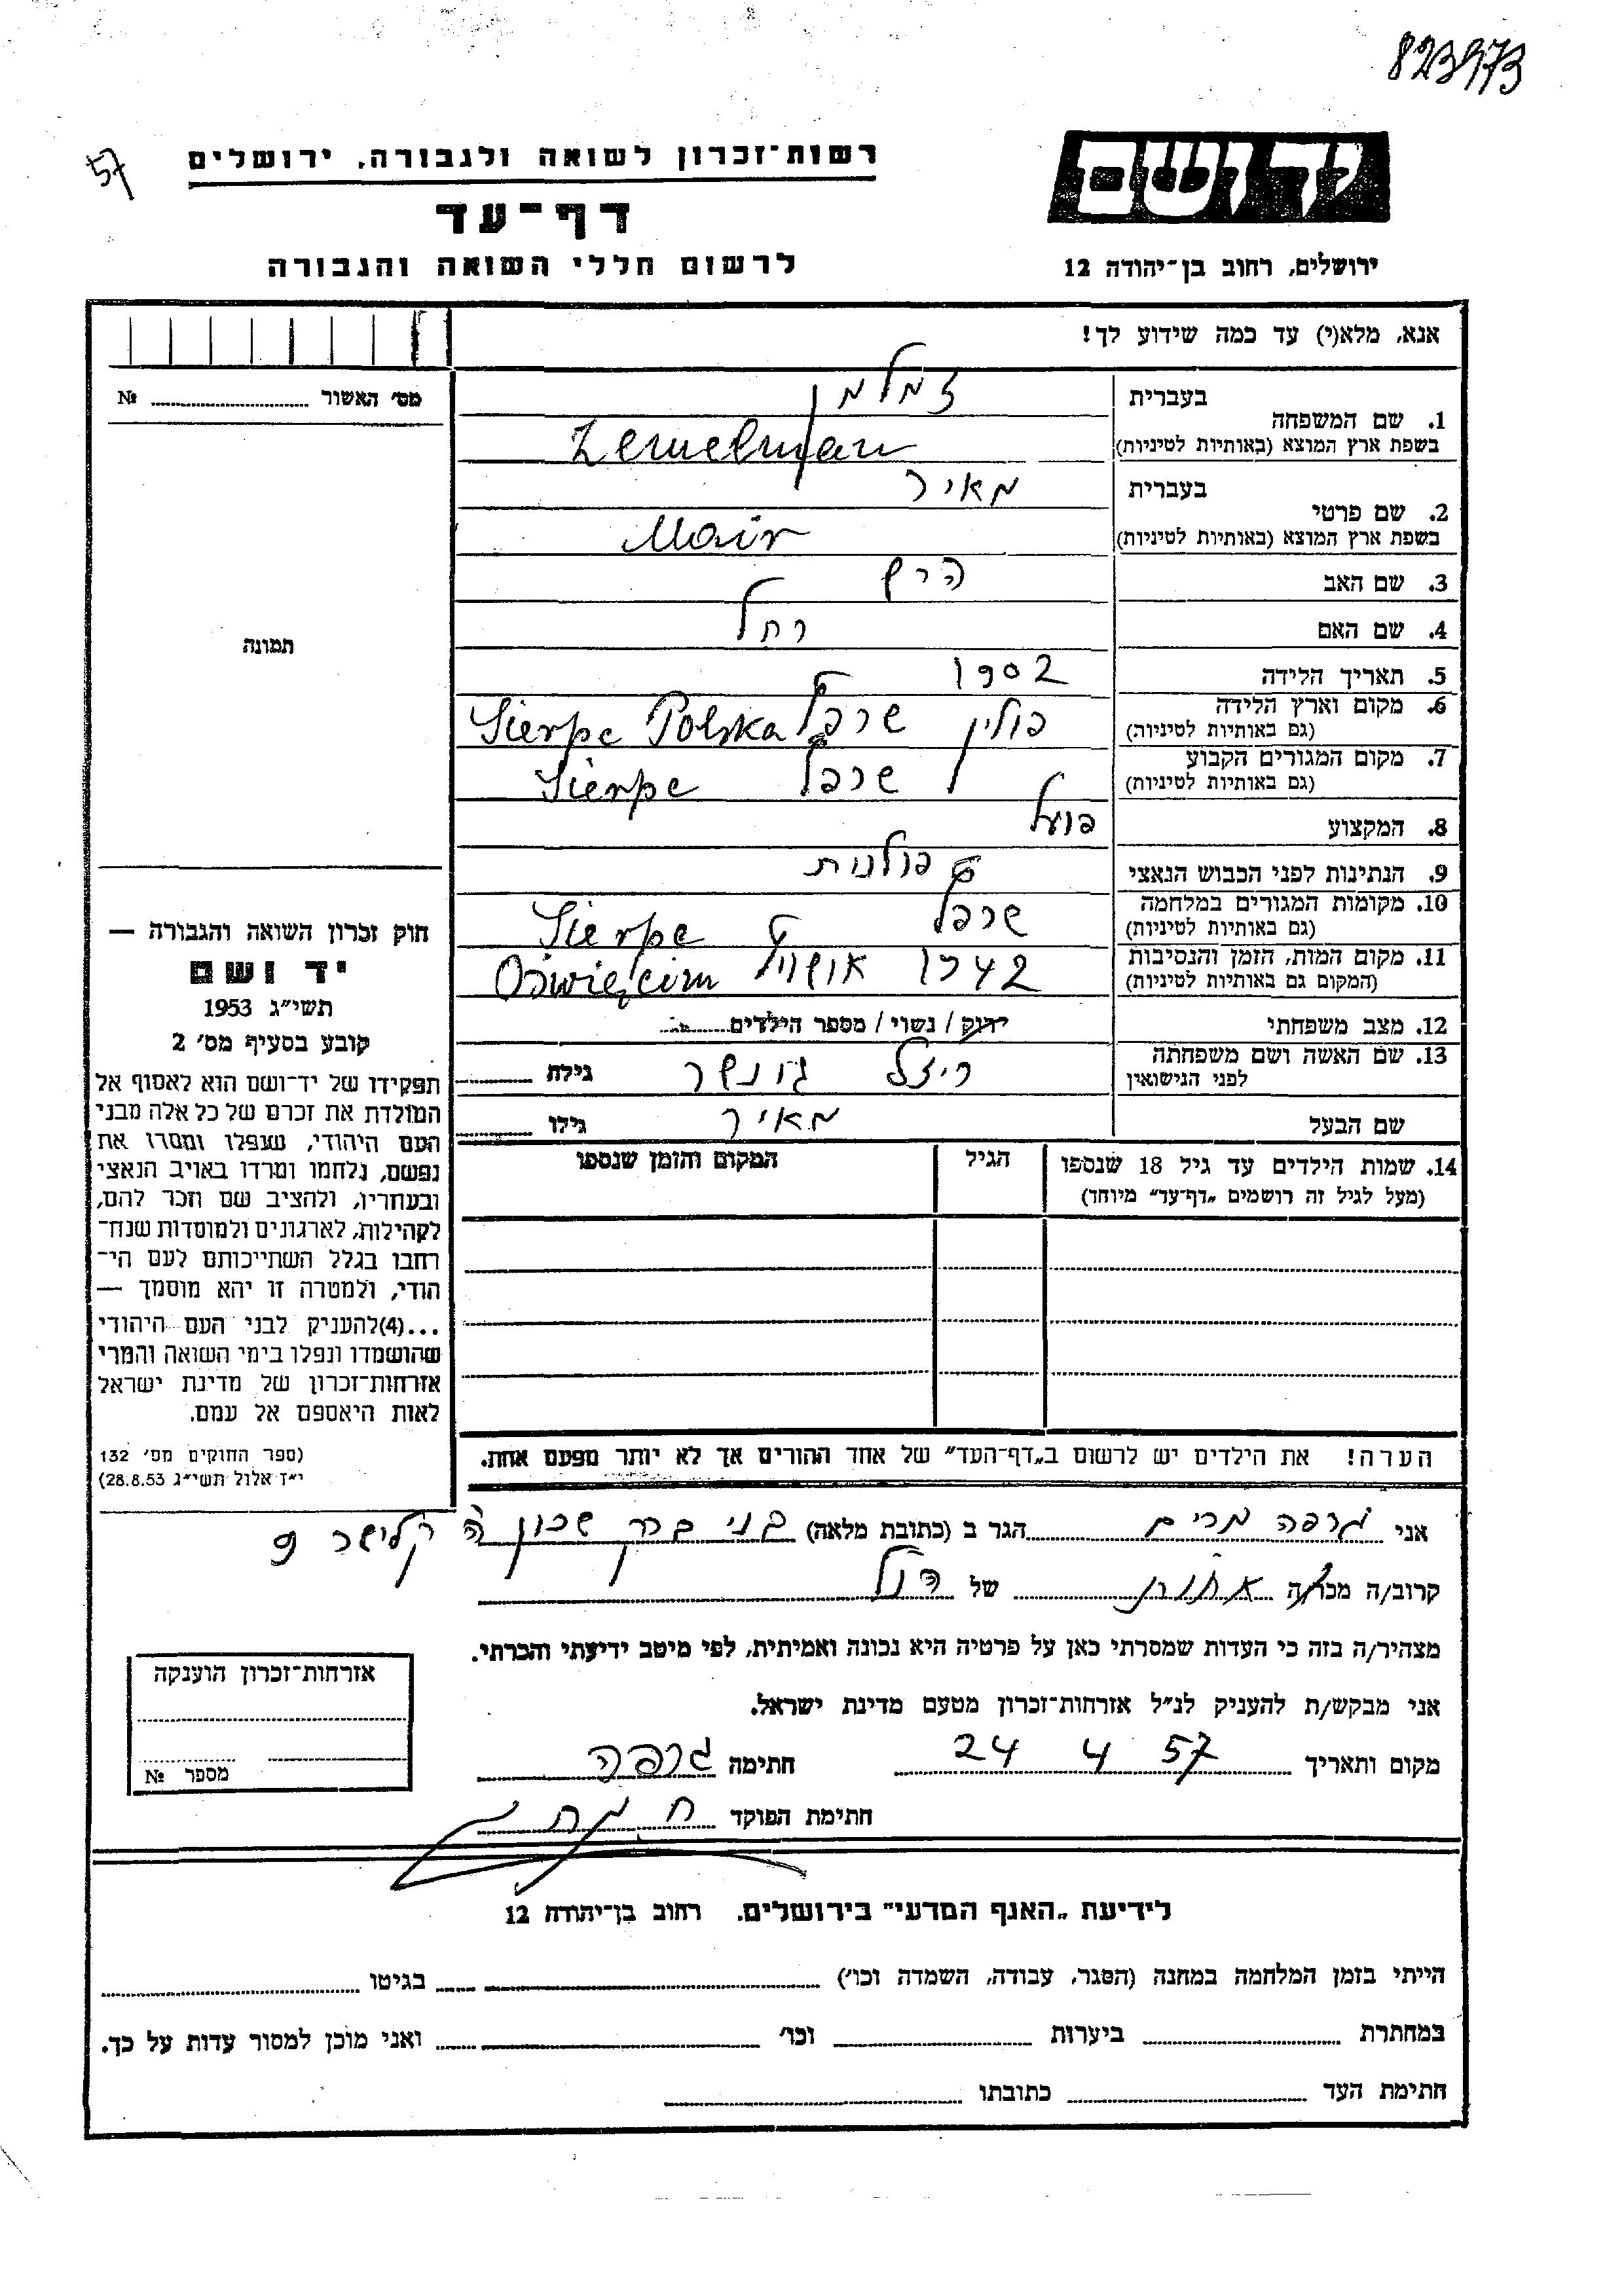 823973
57
רשות־זכרון לשואה ולגבורה, ירושלים
דף־עד
לרשום חללי השואה והגבורה
יד ושם
ירושלים, רחוב בן־יהודה 12
אנא, מלא(י) עד כמה שידוע לך!
מס׳ האשור № 
1. שם המשפחה בעברית זמלמן
בשפת ארץ המוצא (באותיות לטיניות) Zemelman
2. שם פרטי בעברית מאיר
בשפת ארץ המוצא (באותיות לטיניות) Mair
3. שם האב הרש
4. שם האם רחל
5. תאריך הלידה 1902
6. מקום וארץ הלידה (גם באותיות לטיניות) פולין שרפץ Sierpc Polska
7. מקום המגורים הקבוע (גם באותיות לטיניות) שרפץ Sierpc
8. המקצוע פועל
9. הנתינות לפני הכבוש הנאצי פולנית
10. מקומות המגורים במלחמה (גם באותיות לטיניות) שרפץ Sierpc
11. מקום המות, הזמן והנסיבות (המקום גם באותיות לטיניות) 1942 Oświęcim
12. מצב משפחתי רווק / נשוי / מספר הילדים
13. שם האשה ושם משפחתה לפני הנישואין גילה
שם הבעל מאיר גילו
14. שמות הילדים עד גיל 18 שנספו הגיל המקום והזמן שנספו
(מעל לגיל זה רושמים „דף־עד” מיוחד)
הערה! את הילדים יש לרשום ב„דף־העד” של אחד ההורים אך לא יותר מפעם אחת.
תמונה
חוק זכרון השואה והגבורה —
יד ושם
תשי״ג 1953
קובע בסעיף מס׳ 2
תפקידו של יד־ושם הוא לאסוף אל
המולדת את זכרם של כל אלה מבני
העם היהודי, שנפלו ומסרו את
נפשם, נלחמו ומרדו באויב הנאצי
ובעוזריו, ולהציב שם וזכר להם,
לקהילות, לארגונים ולמוסדות שנח־
רבו בגלל השתייכותם לעם הי־
הודי, ולמטרה זו יהא מוסמך —
...(4) להעניק לבני העם היהודי
שהושמדו ונפלו בימי השואה והמרי
אזרחות־זכרון של מדינת ישראל
לאות היאספם אל עמם.
(ספר החוקים מס׳ 132
י״ז אלול תשי״ג 28.8.53)
אני גרפה מרים הגר ב (כתובת מלאה) בני ברק שכון ה קלישר 9
קרוב/ה מכר/ה אחות של הנ״ל
מצהיר/ה בזה כי העדות שמסרתי כאן על פרטיה היא נכונה ואמיתית, לפי מיטב ידיעתי והכרתי.
אני מבקש/ת להעניק לנ״ל אזרחות־זכרון מטעם מדינת ישראל.
מקום ותאריך 24 4 57 חתימה גרפה
חתימת הפוקד
אזרחות־זכרון הוענקה
מספר №
לידיעת „האגף המדעי” בירושלים, רחוב בן־יהודה 12
הייתי בזמן המלחמה במחנה (הסגר, עבודה, השמדה וכו׳) בגיטו
במחתרת ביערות וכו׳ ואני מוכן למסור עדות על כך.
חתימת העד כתובתו